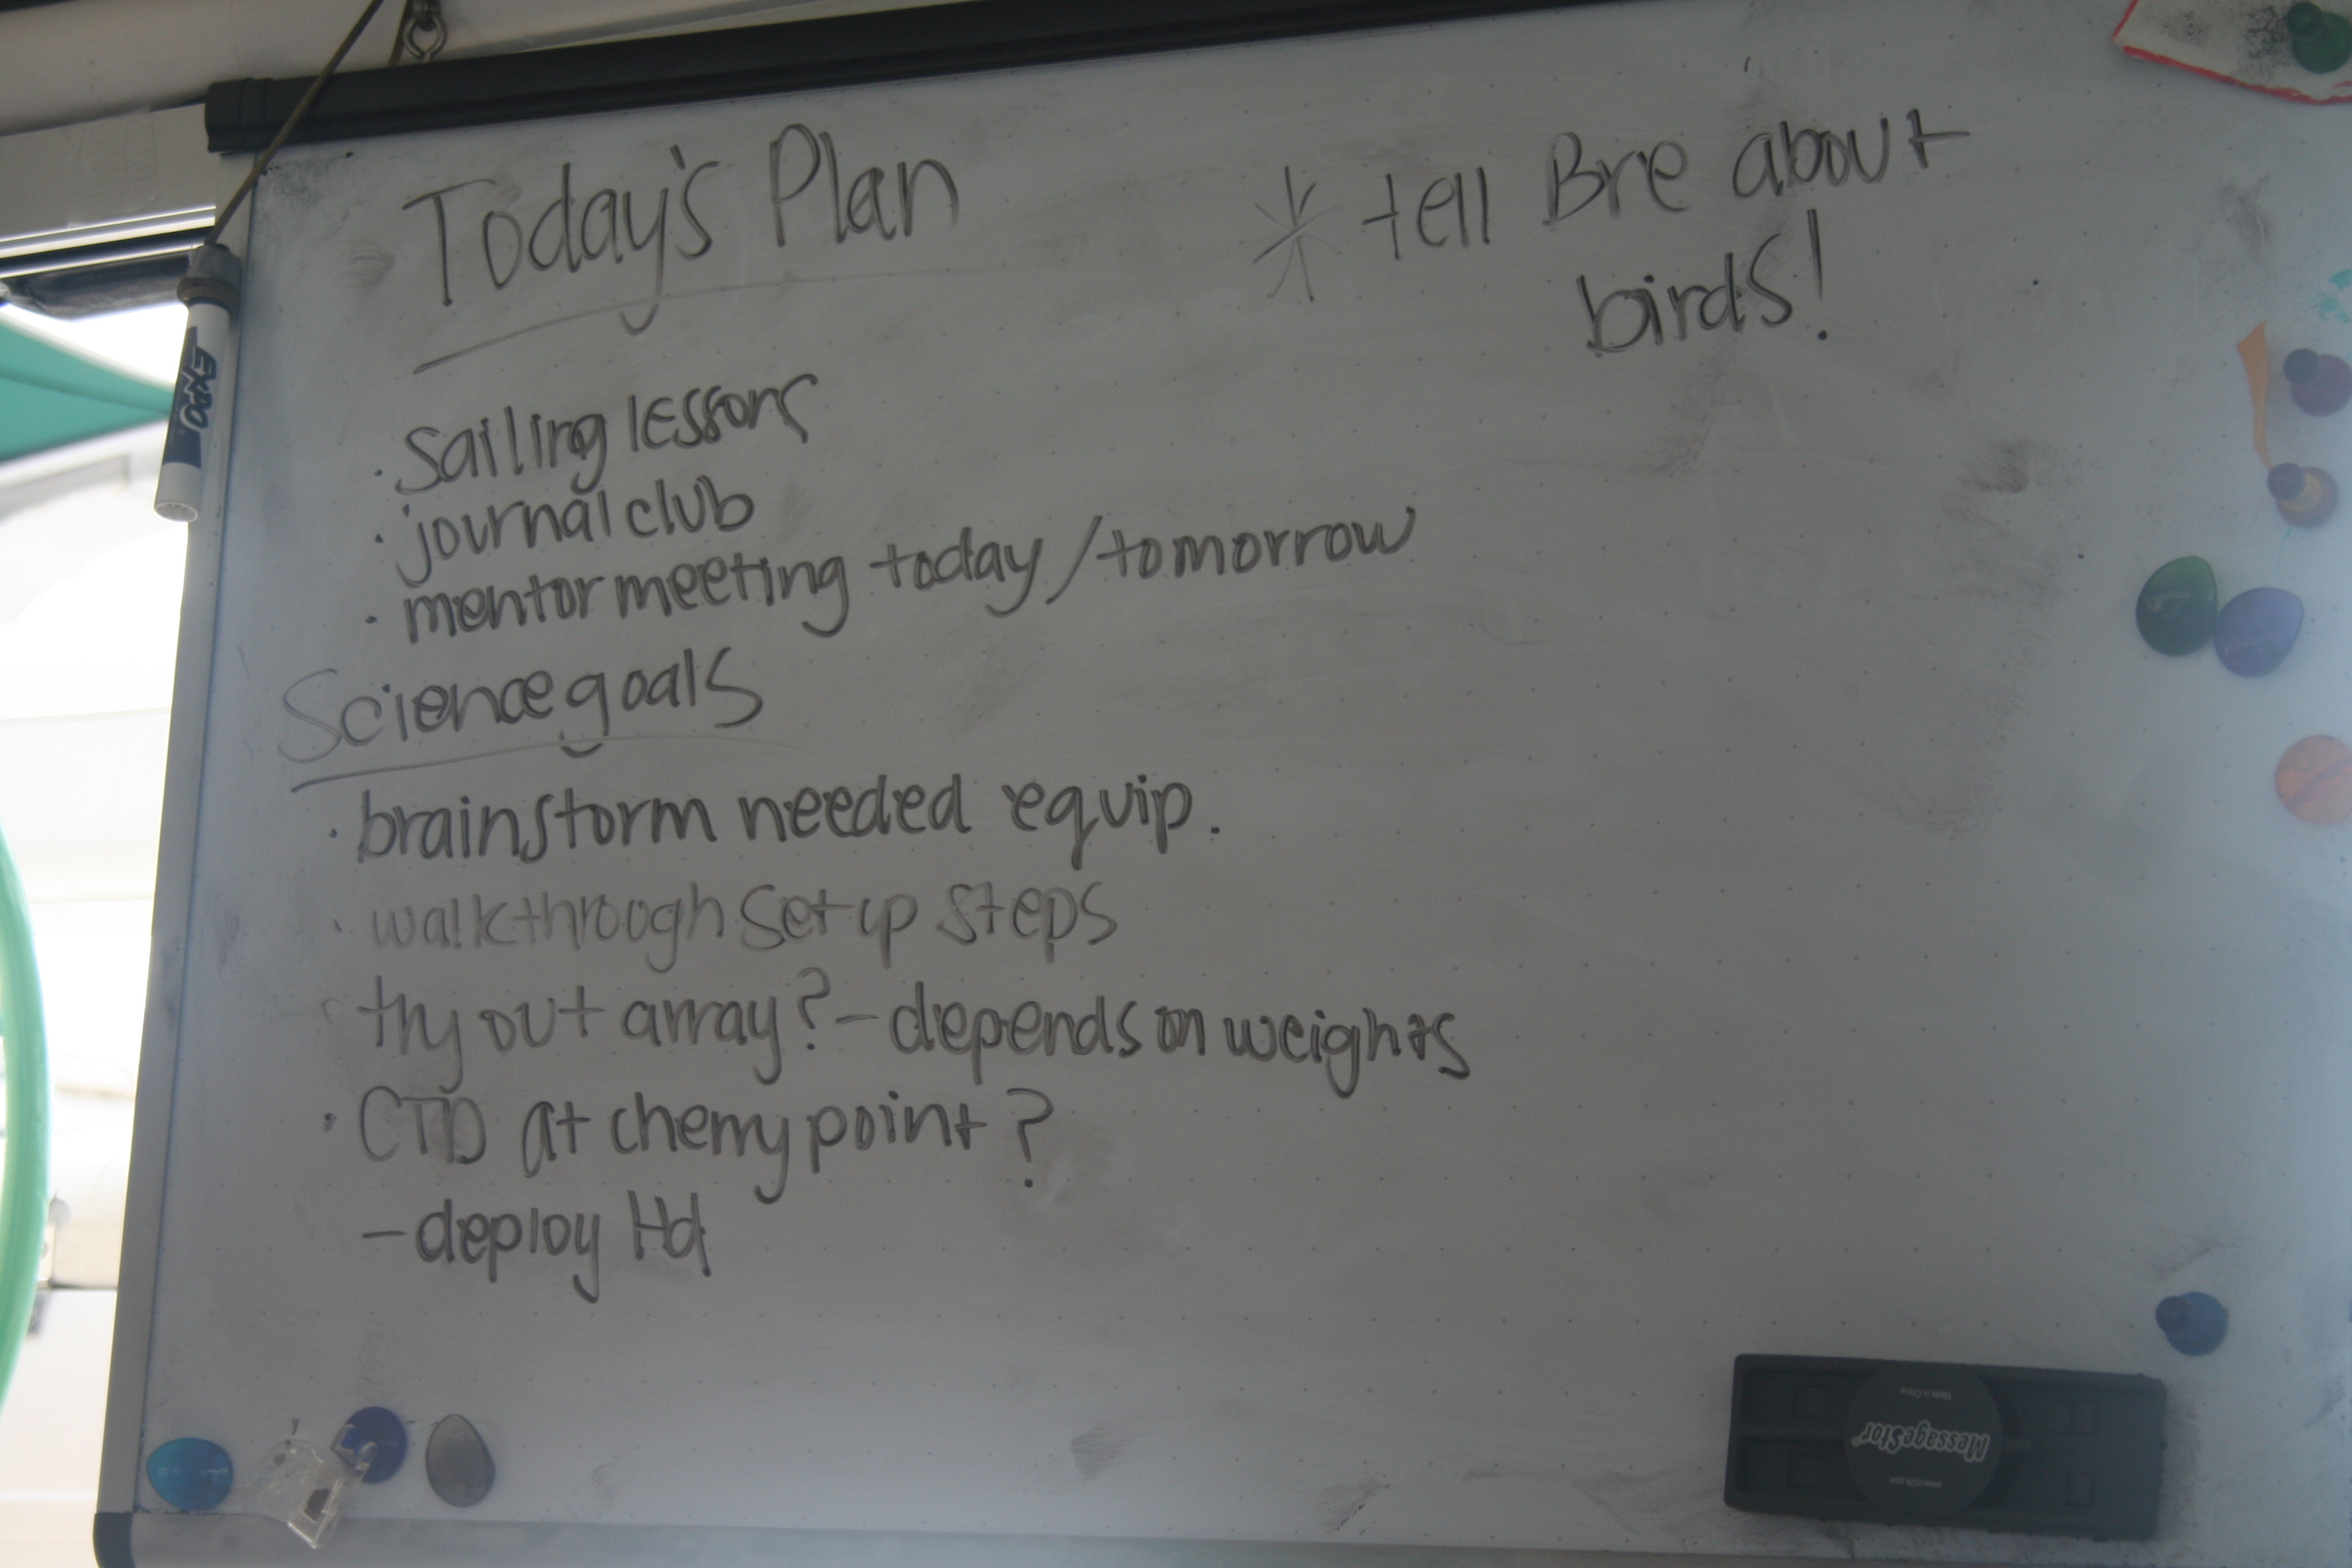 Today's Plan
* tell Bre about
birds!
· sailing lessons
· journal club
· mentor meeting today/tomorrow
Science goals
· brainstorm needed equip.
· walkthrough set up steps
· try out array? - depends on weights
· CTD at cherry point?
- deploy Hd
EXPO
MessageStor
Made in China